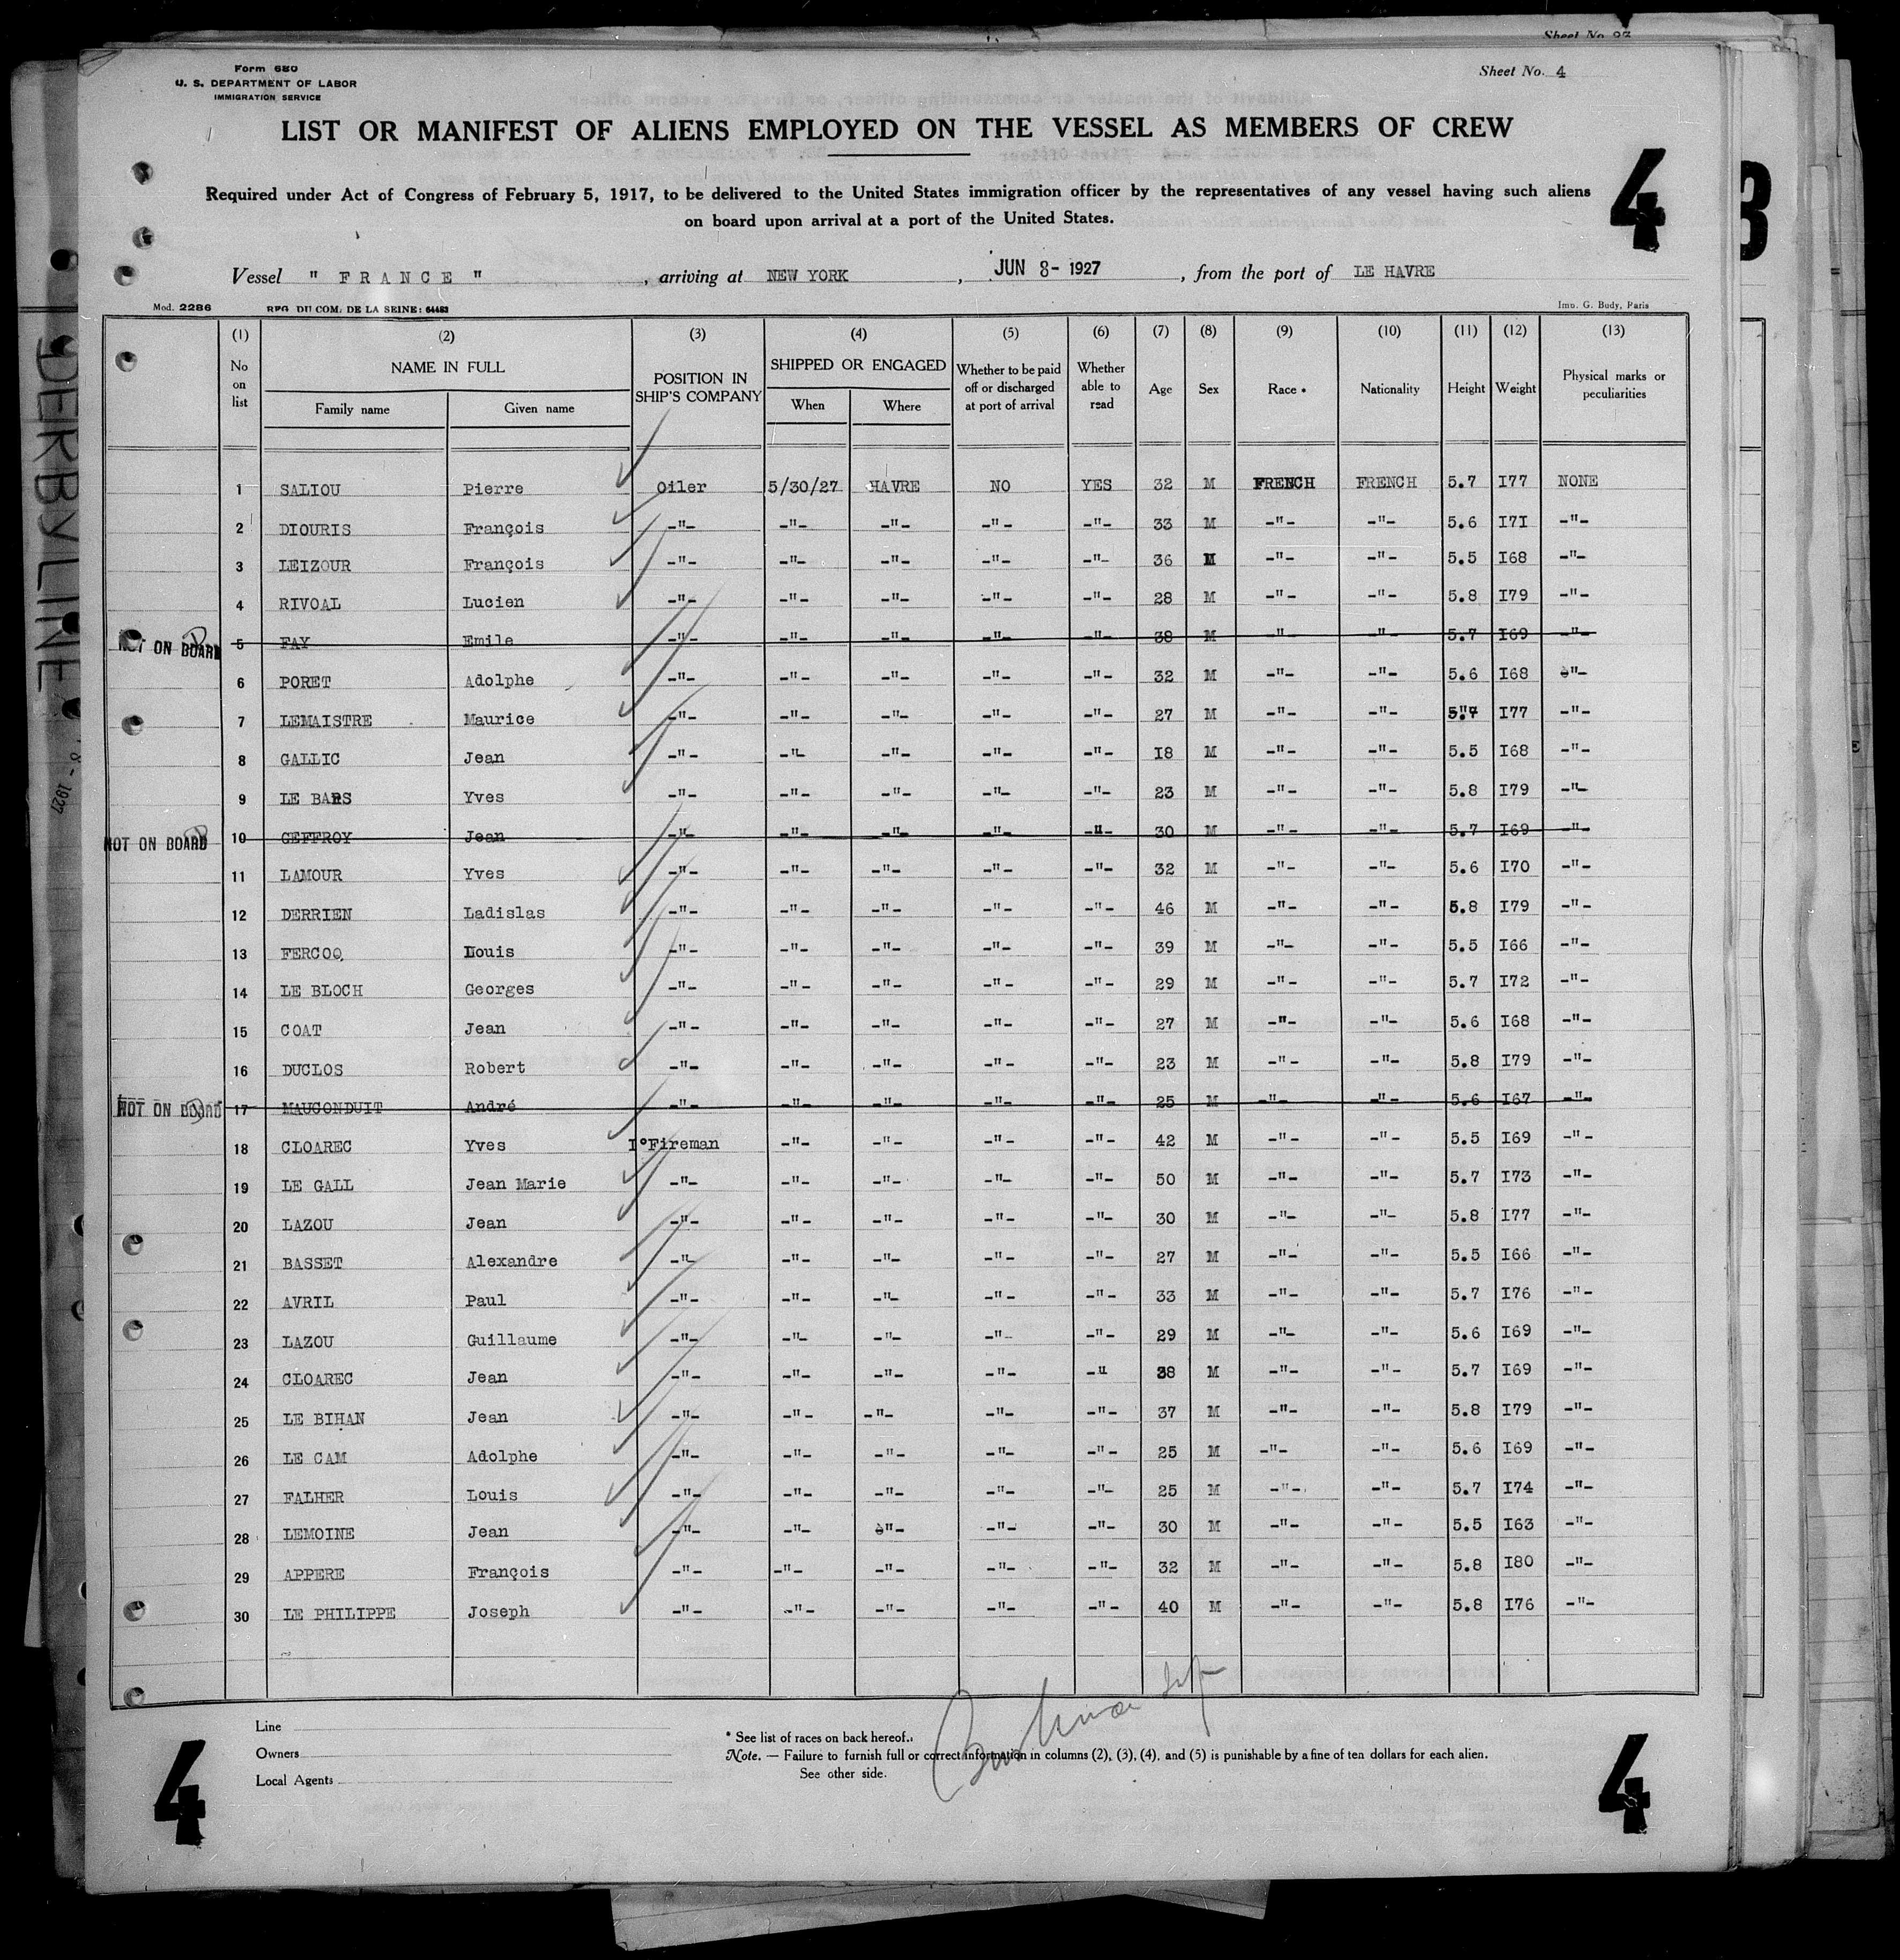 Sheet No. 97
Form 680
U. S. DEPARTMENT OF LABOR
IMMIGRATION SERVICE
Sheet No. 4
LIST OR MANIFEST OF ALIENS EMPLOYED ON THE VESSEL AS MEMBERS OF CREW
4
3
Required under Act of Congress of February 5, 1917, to be delivered to the United States immigration officer by the representatives of any vessel having such aliens
on board upon arrival at a port of the United States.
Vessel " F R A N C E " , arriving at NEW YORK , JUN 8- 1927 , from the port of LE HAVRE
Mod. 2286 REG DU COM. DE LA SEINE: 64483 Imp. G. Budy, Paris
DERBY LINE
8 - 1927
(1) (2) (3) (4) (5) (6) (7) (8) (9) (10) (11) (12) (13)
No on list NAME IN FULL Family name Given name POSITION IN SHIP'S COMPANY SHIPPED OR ENGAGED When Where Whether to be paid off or discharged at port of arrival Whether able to read Age Sex Race * Nationality Height Weight Physical marks or peculiarities
1 SALIOU Pierre Oiler 5/30/27 HAVRE NO YES 32 M FRENCH FRENCH 5.7 I77 NONE
2 DIOURIS François -"- -"- -"- -"- -"- 33 M -"- -"- 5.6 I7I -"-
3 LEIZOUR François -"- -"- -"- -"- -"- 36 M -"- -"- 5.5 I68 -"-
4 RIVOAL Lucien -"- -"- -"- -"- -"- 28 M -"- -"- 5.8 I79 -"-
NOT ON BOARD 5 FAY Emile -"- -"- -"- -"- -"- 38 M -"- -"- 5.7 I69 -"-
6 PORET Adolphe -"- -"- -"- -"- -"- 32 M -"- -"- 5.6 I68 -"-
7 LEMAISTRE Maurice -"- -"- -"- -"- -"- 27 M -"- -"- 5.7 I77 -"-
8 GALLIC Jean -"- -"- -"- -"- -"- I8 M -"- -"- 5.5 I68 -"-
9 LE BARS Yves -"- -"- -"- -"- -"- 23 M -"- -"- 5.8 I79 -"-
NOT ON BOARD 10 GEFFROY Jean -"- -"- -"- -"- -"- 30 M -"- -"- 5.7 I69 -"-
11 LAMOUR Yves -"- -"- -"- -"- -"- 32 M -"- -"- 5.6 I70 -"-
12 DERRIEN Ladislas -"- -"- -"- -"- -"- 46 M -"- -"- 5.8 I79 -"-
13 FERCOQ Louis -"- -"- -"- -"- -"- 39 M -"- -"- 5.5 I66 -"-
14 LE BLOCH Georges -"- -"- -"- -"- -"- 29 M -"- -"- 5.7 I72 -"-
15 COAT Jean -"- -"- -"- -"- -"- 27 M -"- -"- 5.6 I68 -"-
16 DUCLOS Robert -"- -"- -"- -"- -"- 23 M -"- -"- 5.8 I79 -"-
NOT ON BOARD 17 MAUCONDUIT André -"- -"- -"- -"- -"- 25 M -"- -"- 5.6 I67 -"-
18 CLOAREC Yves I°Fireman -"- -"- -"- -"- 42 M -"- -"- 5.5 I69 -"-
19 LE GALL Jean Marie -"- -"- -"- -"- -"- 50 M -"- -"- 5.7 I73 -"-
20 LAZOU Jean -"- -"- -"- -"- -"- 30 M -"- -"- 5.8 I77 -"-
21 BASSET Alexandre -"- -"- -"- -"- -"- 27 M -"- -"- 5.5 I66 -"-
22 AVRIL Paul -"- -"- -"- -"- -"- 33 M -"- -"- 5.7 I76 -"-
23 LAZOU Guillaume -"- -"- -"- -"- -"- 29 M -"- -"- 5.6 I69 -"-
24 CLOAREC Jean -"- -"- -"- -"- -" 38 M -"- -"- 5.7 I69 -"-
25 LE BIHAN Jean -"- -"- -"- -"- -"- 37 M -"- -"- 5.8 I79 -"-
26 LE CAM Adolphe -"- -"- -"- -"- -"- 25 M -"- -"- 5.6 I69 -"-
27 FALHER Louis -"- -"- -"- -"- -"- 25 M -"- -"- 5.7 I74 -"-
28 LEMOINE Jean -"- -"- -"- -"- -"- 30 M -"- -"- 5.5 I63 -"-
29 APPERE François -"- -"- -"- -"- -"- 32 M -"- -"- 5.8 I80 -"-
30 LE PHILIPPE Joseph -"- -"- -"- -"- -"- 40 M -"- -"- 5.8 I76 -"-
Line
Owners
Local Agents
* See list of races on back hereof.
Note. — Failure to furnish full or correct information in columns (2), (3), (4), and (5) is punishable by a fine of ten dollars for each alien.
See other side.
4
4